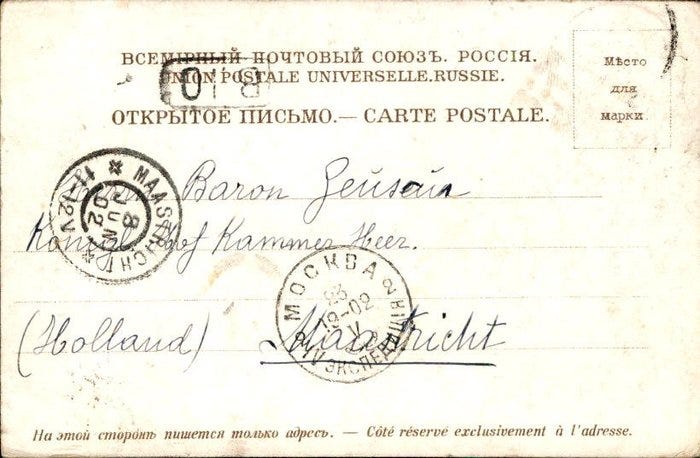 ВСЕМІРНЫЙ ПОЧТОВЫЙ СОЮЗЪ. РОССІЯ.
UNION POSTALE UNIVERSELLE. RUSSIE.
ОТКРЫТОЕ ПИСЬМО.— CARTE POSTALE.
Мѣсто
для
марки
MAASTRICHT
8
JUN
02
Baron
Kammer Heer.
МОСКВА
(Holland) Maastricht
На этой сторонѣ пишется только адресъ. — Côté réservé exclusivement à l'adresse.